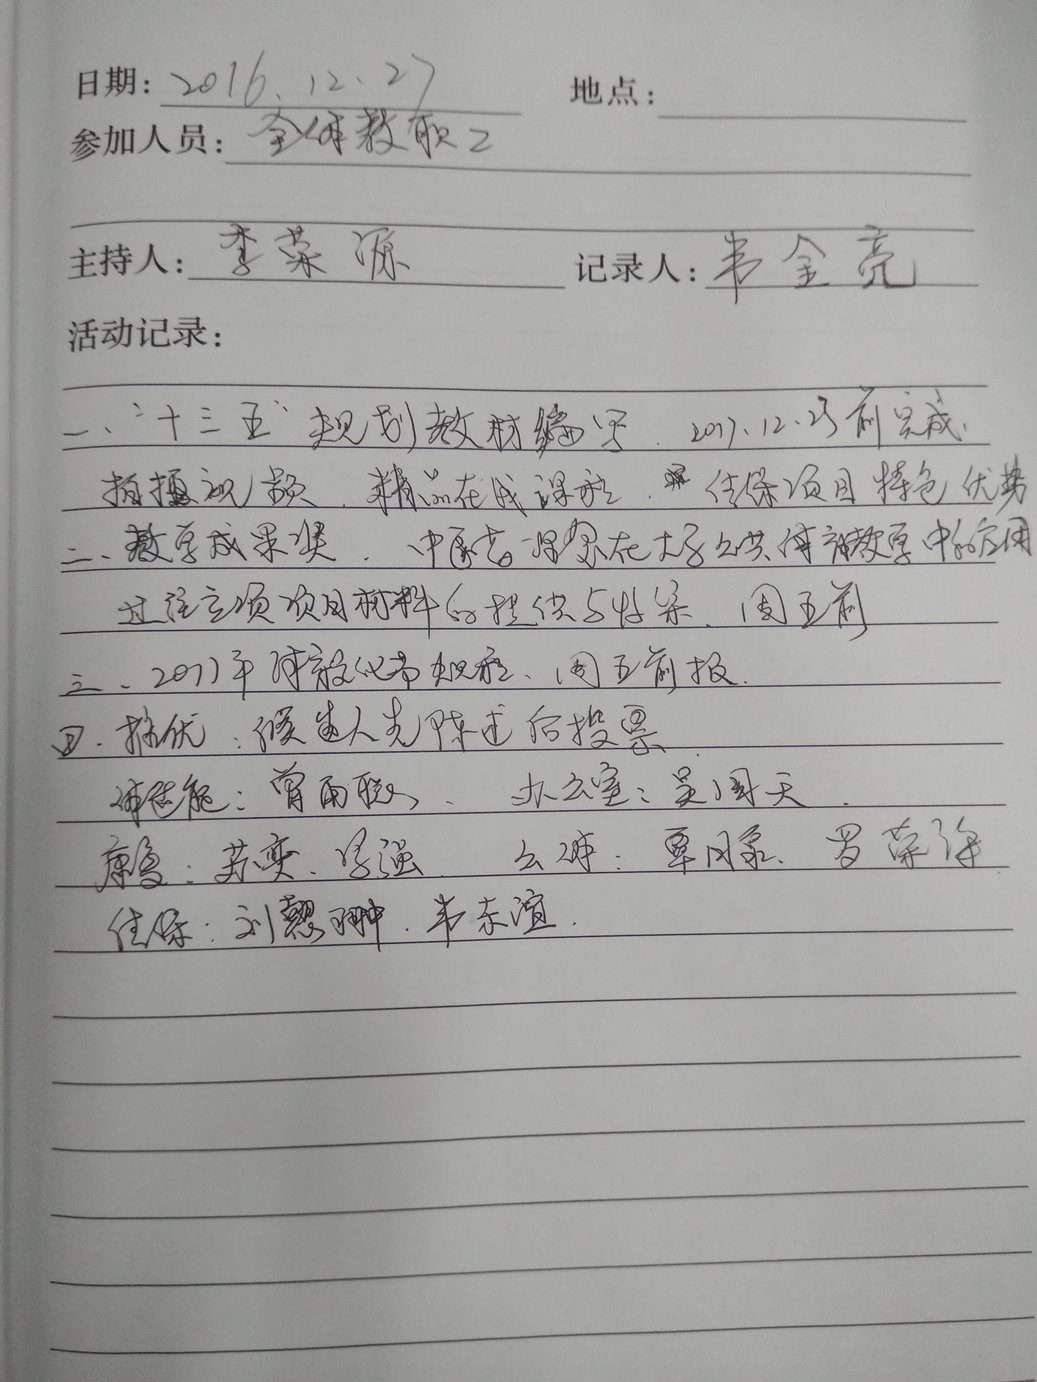 日期: 2016.12.27 地点:
参加人员: 全体教职工
主持人: 李荣源 记录人: 韦金亮
活动记录:
一、“十三五”规划教材编写. 2017.12.23前完成.
拍摄视频. 精品在线课程. 传保项目特色优势
二、教学成果奖. 在大学公共体育教学中的应用
过往立项项目材料的提供与. 周五前
三、2017年体育. 周五前报.
四. 推优: 候选人先陈述后投票.
体艺能: 曾雨. 办公室: 吴周天.
康复: 苏奕. 李强. 公体: 覃 罗荣
传保: 刘 韦东谊.